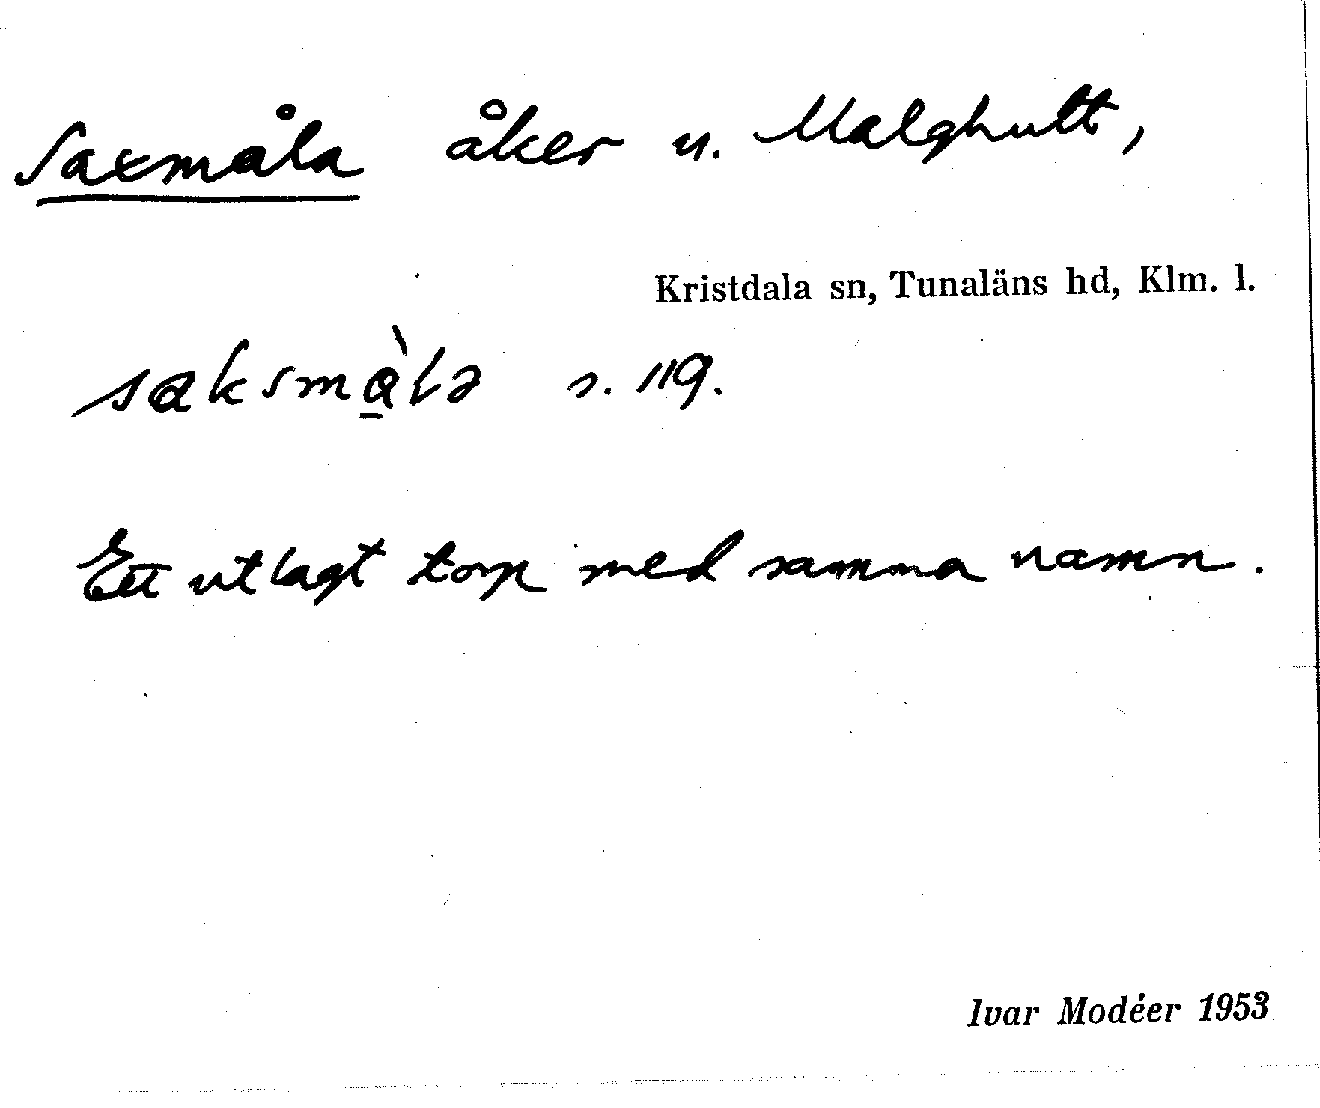 Saxmåla åker u. Malghult,
Kristdala sn, Tunaläns hd, Klm. l.
saksmà̱lə s. 119.
Ett utlagt torp med samma namn.
Ivar Modéer 1953